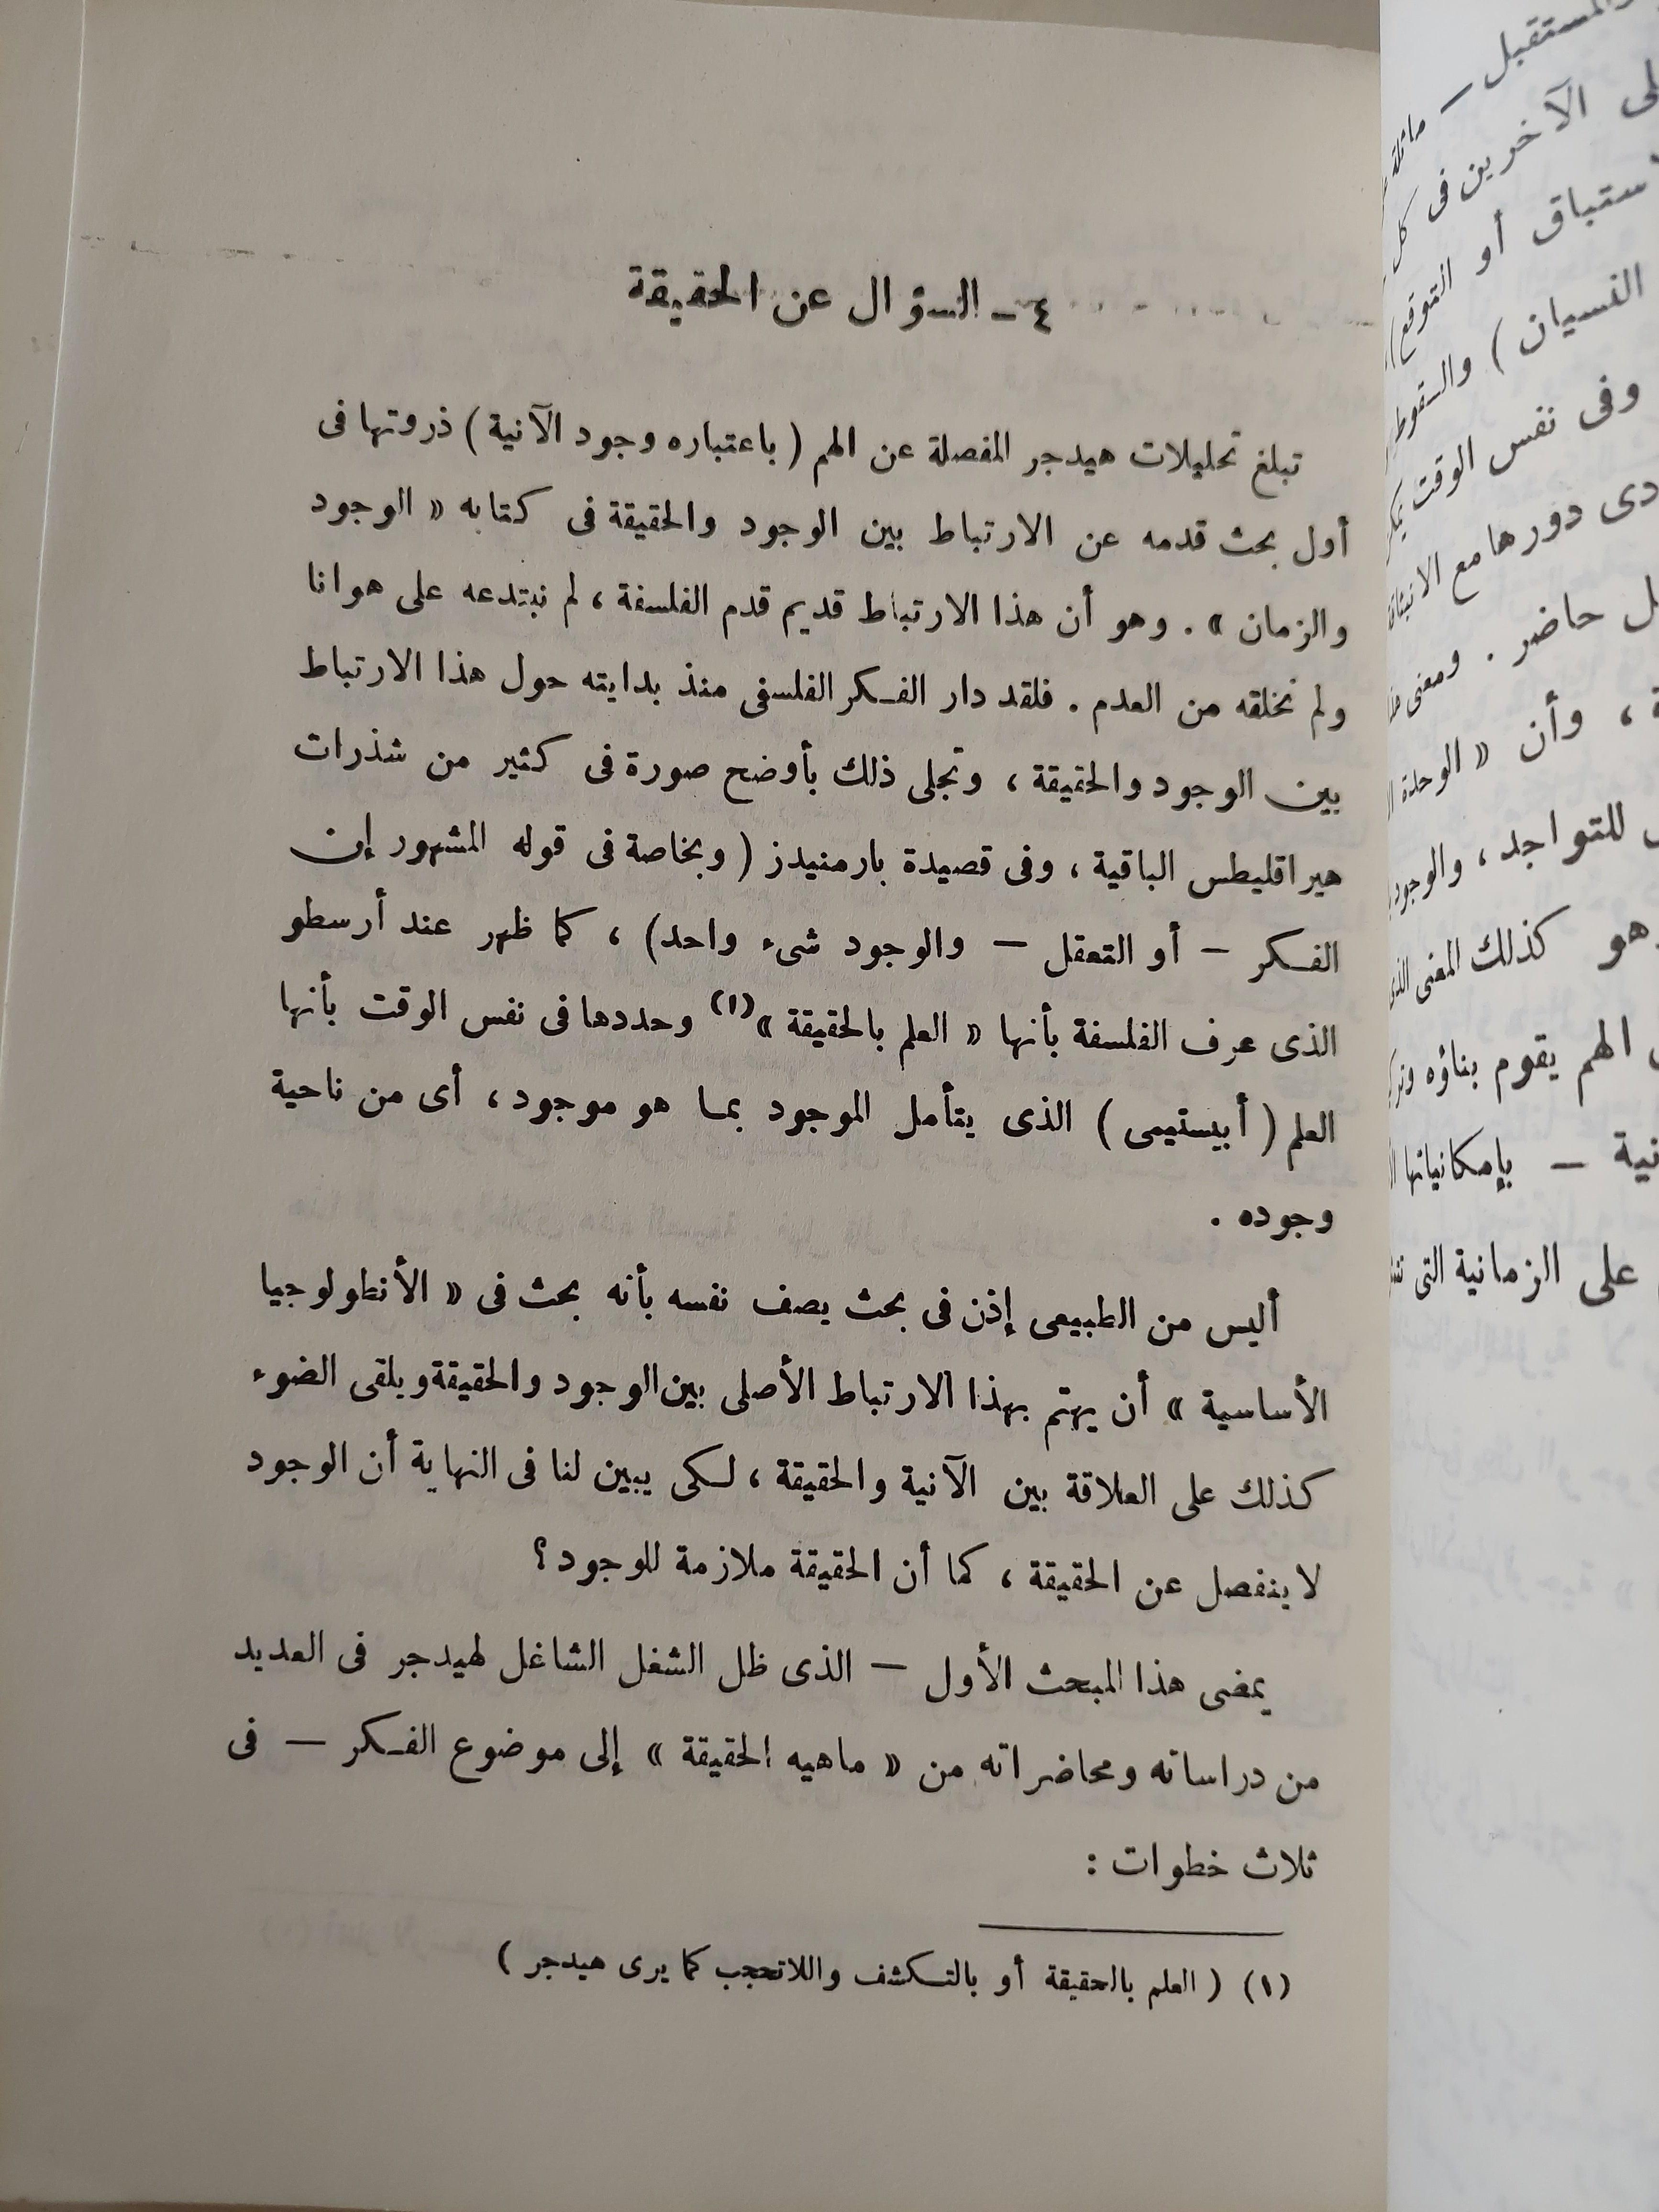 ٤ - السؤال عن الحقيقة
تبلغ تحليلات هيدجر المفصلة عن الهم ( باعتباره وجود الآنية ) ذروتها فى
أول بحث قدمه عن الارتباط بين الوجود والحقيقة فى كتابه « الوجود
والزمان » . وهو أن هذا الارتباط قديم قدم الفلسفة ، لم نبتدعه على هوانا
ولم نخلقه من العدم . فلقد دار الفكر الفلسفى منذ بدايته حول هذا الارتباط
بين الوجود والحقيقة ، وتجلى ذلك بأوضح صورة فى كثير من شذرات
هيراقليطس الباقية ، وفى قصيدة بارمنيدز ( وبخاصة فى قوله المشهور إن
الفكر – أو التعقل – والوجود شىء واحد) ، كما ظهر عند أرسطو
الذى عرف الفلسفة بأنها « العلم بالحقيقة »(١) وحددها فى نفس الوقت بأنها
العلم ( أبيستيمى ) الذى يتأمل الموجود بما هو موجود ، أى من ناحية
وجوده .
أليس من الطبيعى إذن فى بحث يصف نفسه بأنه بحث فى « الأنطولوجيا
الأساسية » أن يهتم بهذا الارتباط الأصلى بين الوجود والحقيقة ويلقى الضوء
كذلك على العلاقة بين الآنية والحقيقة ، لكى يبين لنا فى النهاية أن الوجود
لا ينفصل عن الحقيقة ، كما أن الحقيقة ملازمة للوجود ؟
يمضى هذا المبحث الأول – الذى ظل الشغل الشاغل لهيدجر فى العديد
من دراساته ومحاضراته من « ماهيه الحقيقة » إلى موضوع الفكر – فى
ثلاث خطوات :
(١) ( العلم بالحقيقة أو بالتكشف واللاتحجب كما يرى هيدجر )
والمستقبل – ماثلة
الآخرين فى كل
أو التوقع
النسيان ) والسقوط
وفى نفس الوقت
دورها مع
حاضر . ومعنى
، وأن « الوحدة
للتواجد ، والوجود
وهو كذلك المعنى الذى
الهم يقوم بناؤه
– بإمكانياتها
على الزمانية التى